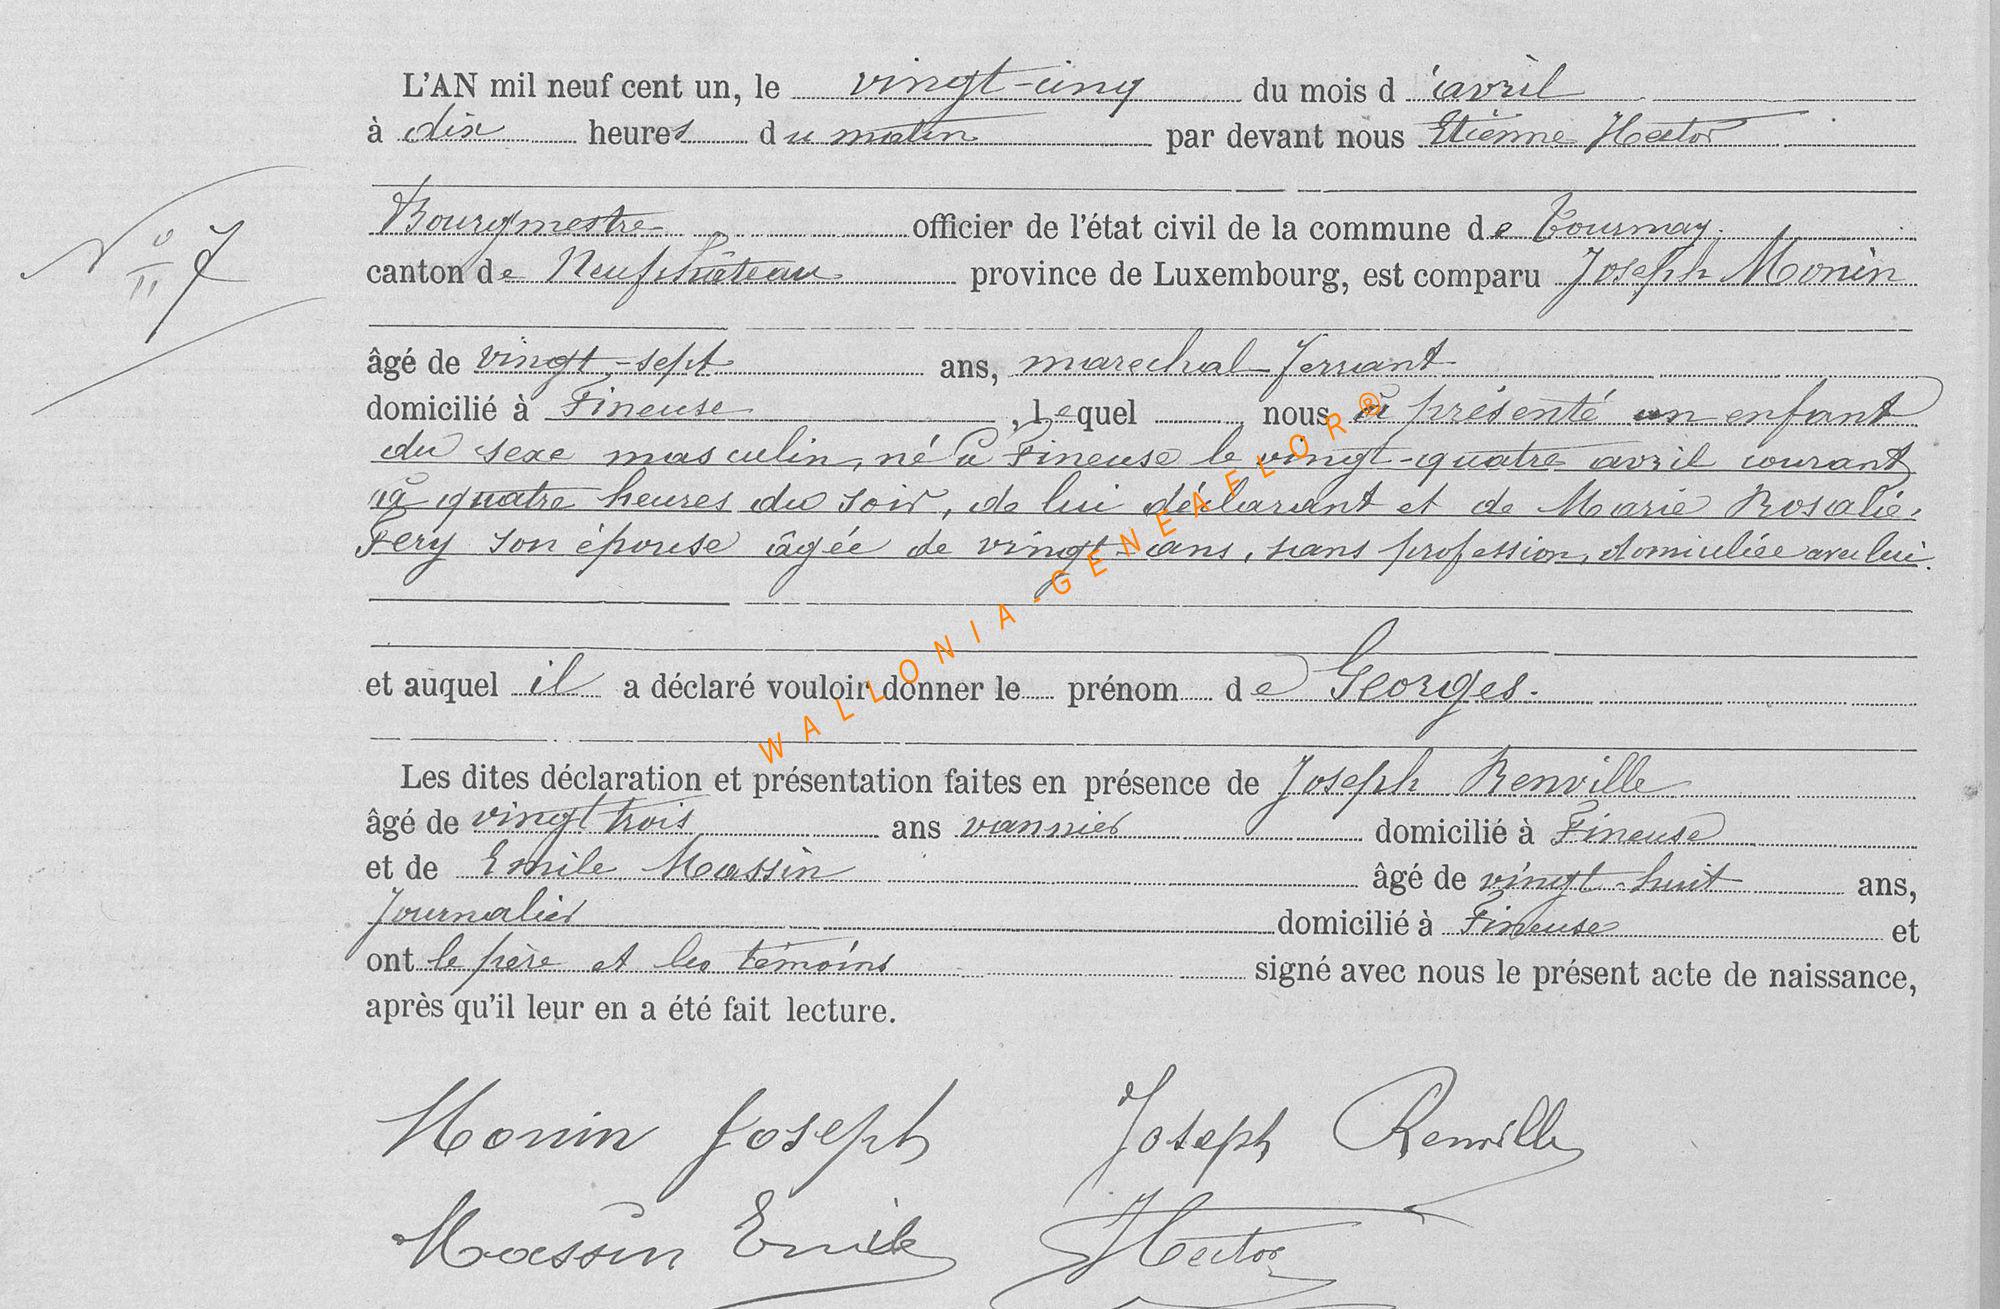 L'AN mil neuf cent un, le vingt-cinq du mois d'avril
à dix heures du matin par devant nous Etienne Hector
Bourgmestre officier de l'état civil de la commune de Tournay.
canton de Neufchâteau province de Luxembourg, est comparu Joseph Monin
N° 7
âgé de vingt-sept ans, marechal-ferrant
domicilié à Fineuse, lequel nous a présenté un enfant
du sexe masculin, né à Fineuse le vingt-quatre avril courant
à quatre heures du soir, de lui déclarant et de Marie Rosalie
Fery son épouse âgée de vingt ans, sans profession, domiciliée avec lui.
et auquel il a déclaré vouloir donner le prénom de Georges.
Les dites déclaration et présentation faites en présence de Joseph Renville
âgé de vingt trois ans vannier domicilié à Fineuse
et de Emile Massin âgé de vingt-huit ans,
Journalier domicilié à Fineuse et
ont le père et les témoins signé avec nous le présent acte de naissance,
après qu'il leur en a été fait lecture.
Monin Joseph Joseph Renville
Massin Emile Hector
WALLONIA-GENEAELOR®